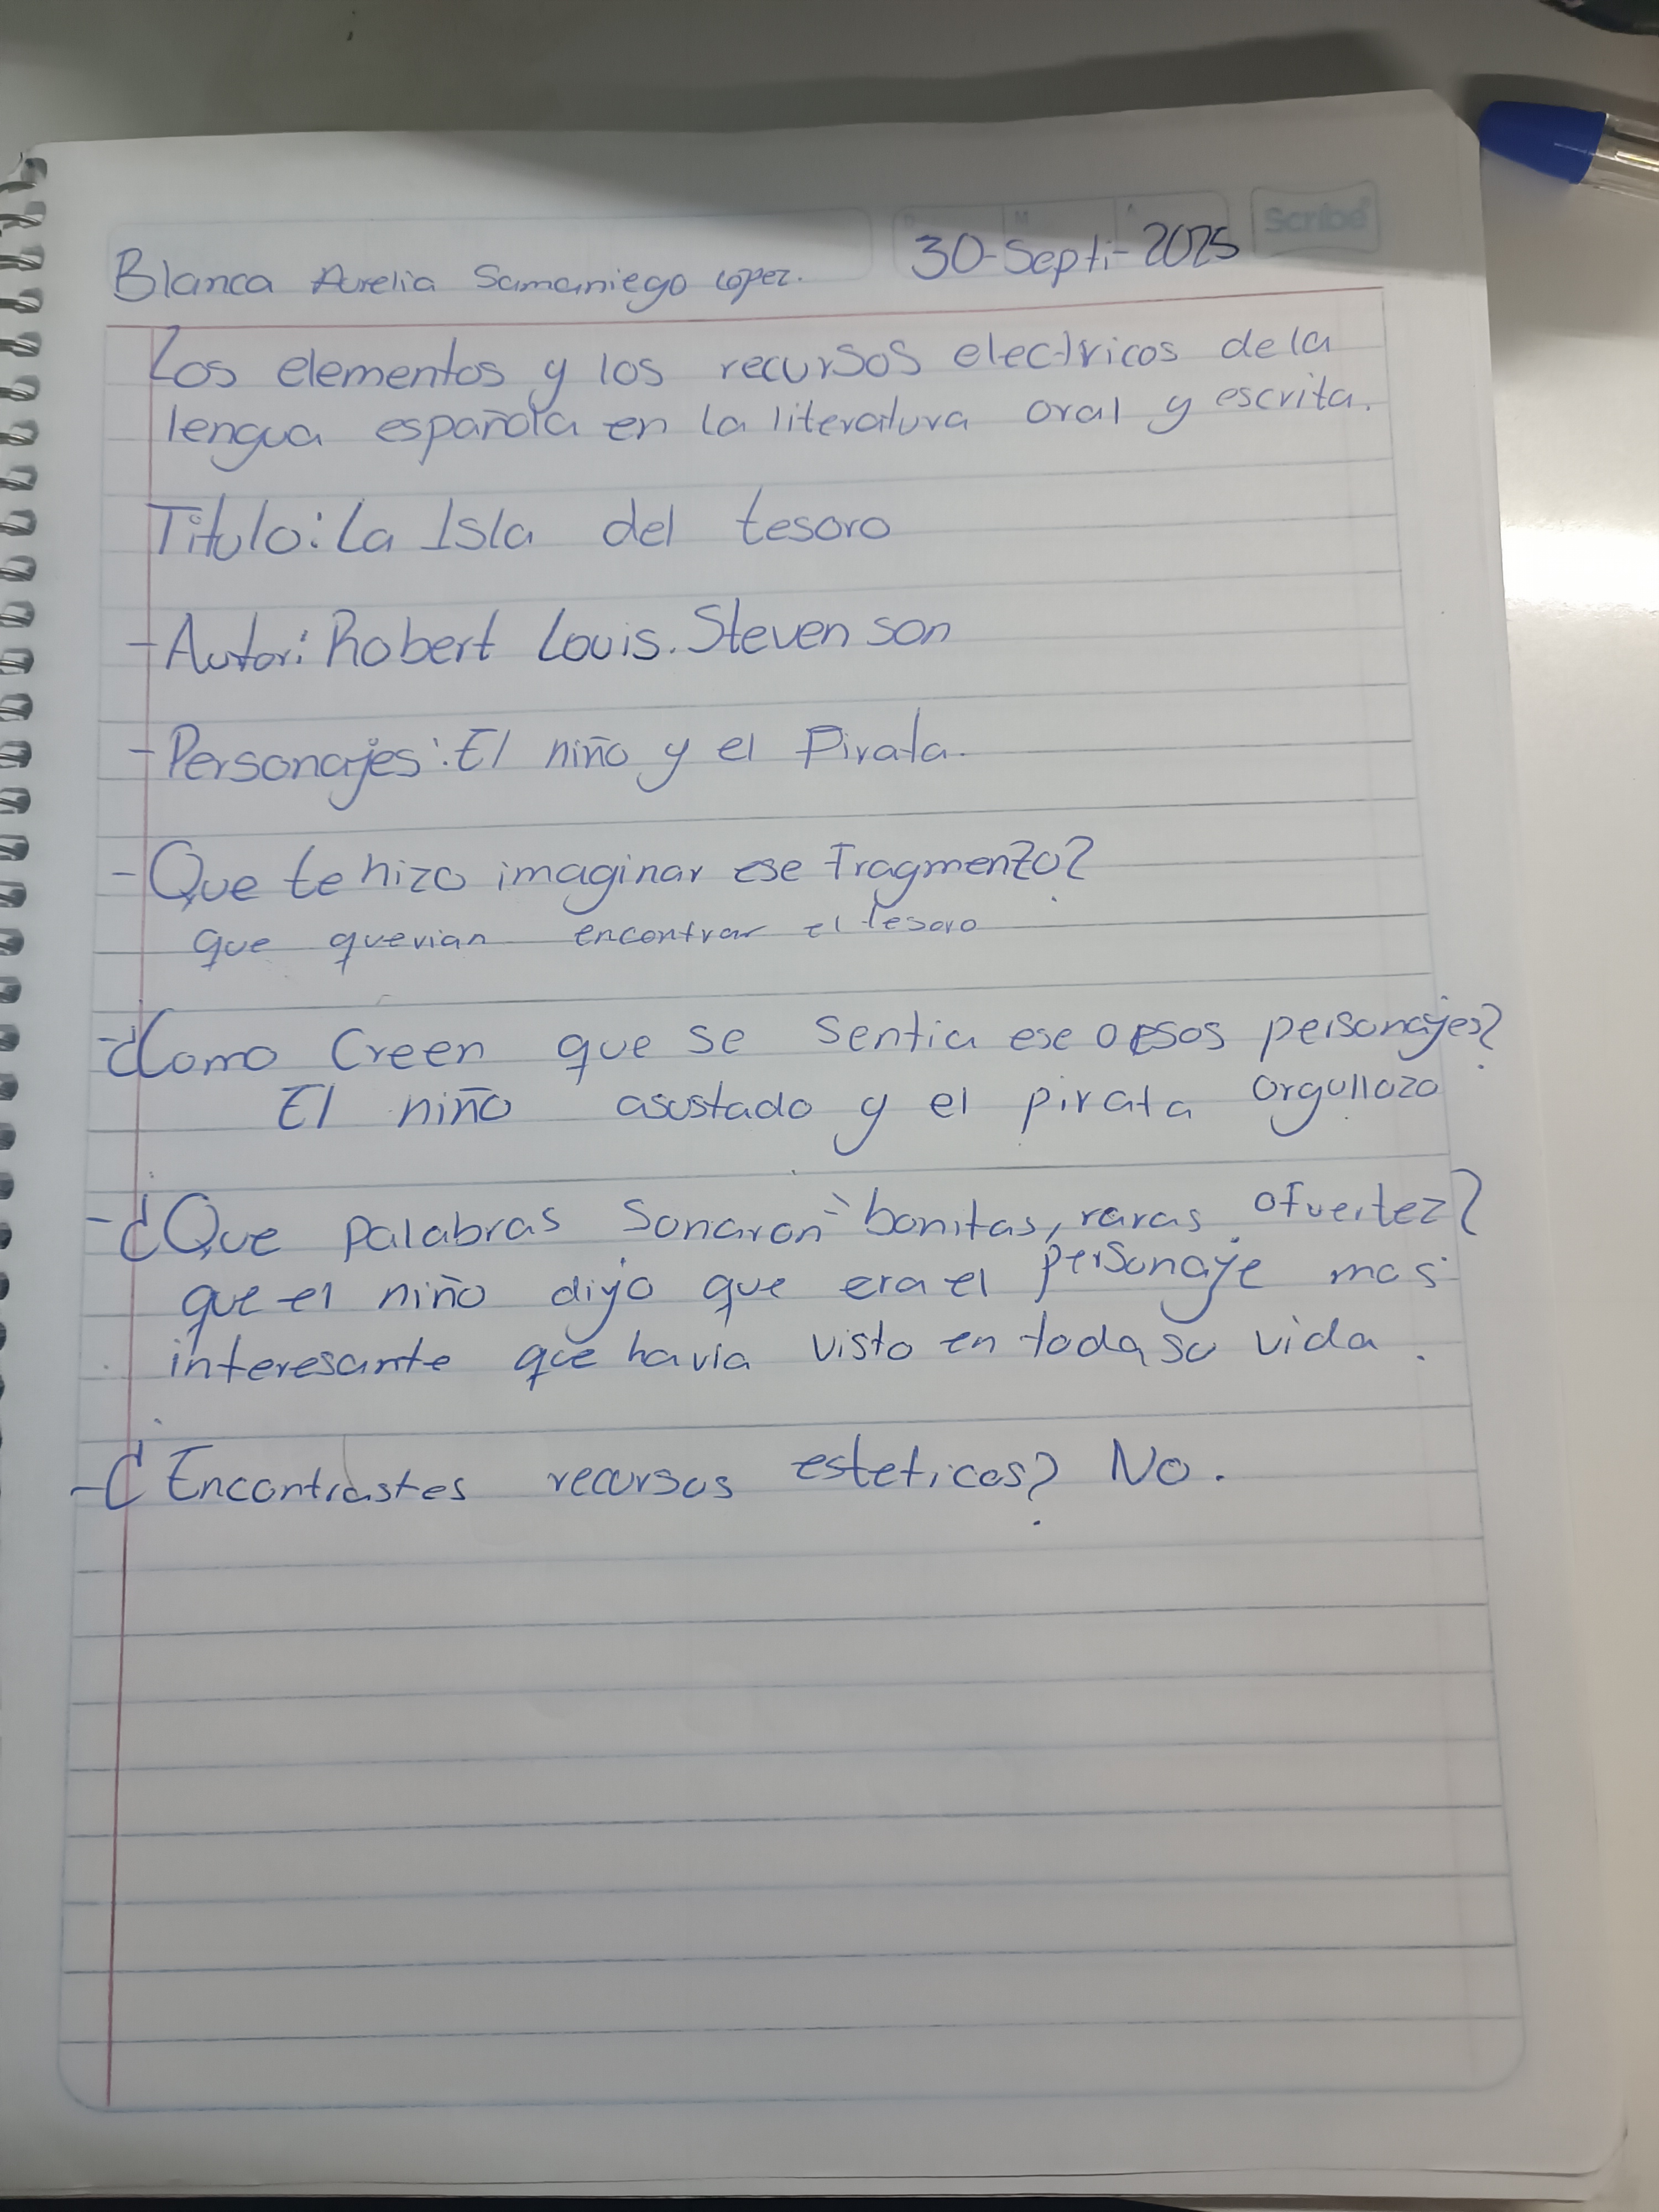 Scribe
30-Septi-2025
Blanca Aurelia Samaniego Lopez.
Los elementos y los recursos electricos de la
lengua española en la literatura oral y escrita.
Titulo: La Isla del tesoro
-Autor: Robert Louis. Stevenson
-Personajes: El niño y el Pirata.
-Que te hizo imaginar ese fragmento?
que querian encontrar el tesoro
-¿Como Creen que se sentia ese o esos personajes?
El niño asustado y el pirata orgullozo
-¿Que palabras Sonaron bonitas, raras o fuertez?
que el niño dijo que era el personaje mas
interesante que havia visto en toda su vida.
-¿Encontrastes recursos esteticos? No.